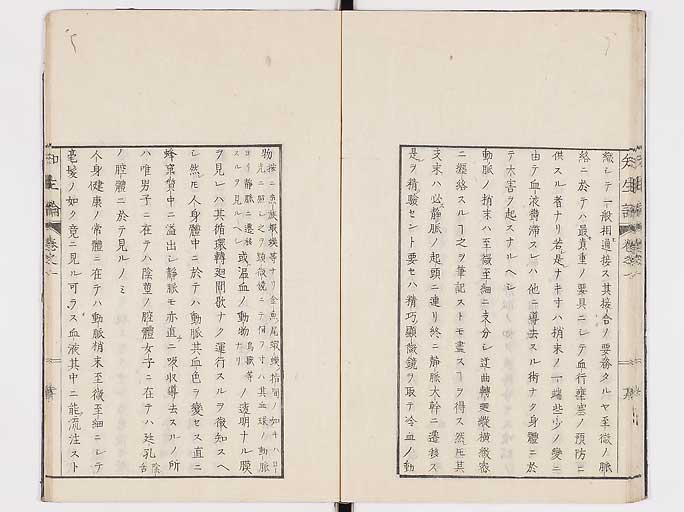 織シテ一般相通接ス其接合ノ要務タルヤ至微ノ脈
絡ニ於テハ最貴重ノ要具ニシテ血行壅塞ノ預防ニ
供スル者ナリ若是ナキ寸ハ梢末ノ一端些少ノ變ニ
由テ血液鬱滞スレハ他ニ導去スル術ナク身體ニ於
テ大害ヲ起スナルヘシ
動脈ノ梢末ハ至微至細ニ支分シ迂曲轉廻縱横緻密
ニ纒絡スルヿ之ヲ筆記ストモ盡スヿヲ得ス然㪽其
支末ハ必静脈ノ起頭ニ連リ終ニ静脈大幹ニ遷移ス
是ヲ精驗セント要セハ精巧顯微鏡ヲ取テ冷血ノ動
物
按ニ魚族蝦蟆等ナリ金魚尾蝦蟆指間ノ如キハ日
光ニ照シ之ヲ顕微鏡ニテ伺フ寸ハ其血球ノ動脈
ヨリ静脈ニ遷移
スルヲ見ルヘシ
或温血ノ動物
鳥獸等
ナリ
ノ透明ナル膜
ヲ見レハ其循環轉廻間歇ナク運行スルヲ徴知スヘ
シ然㪽人身體中ニ於テハ動脈其血色ヲ變セス直ニ
蜂窠質中ニ溢出シ静脈モ亦直ニ吸収導去スルノ所
ハ唯男子ニ在テハ陰莖ノ腔體女子ニ在テハ廷孔
陰
舌
ノ腔體ニ於テ見ルノミ
人身健康ノ常體ニ在テハ動脈梢末至微至細ニシテ
毫髪ノ如ク竟ニ見ル可ラス血液其中ニ能流注スト
知生論
巻之一